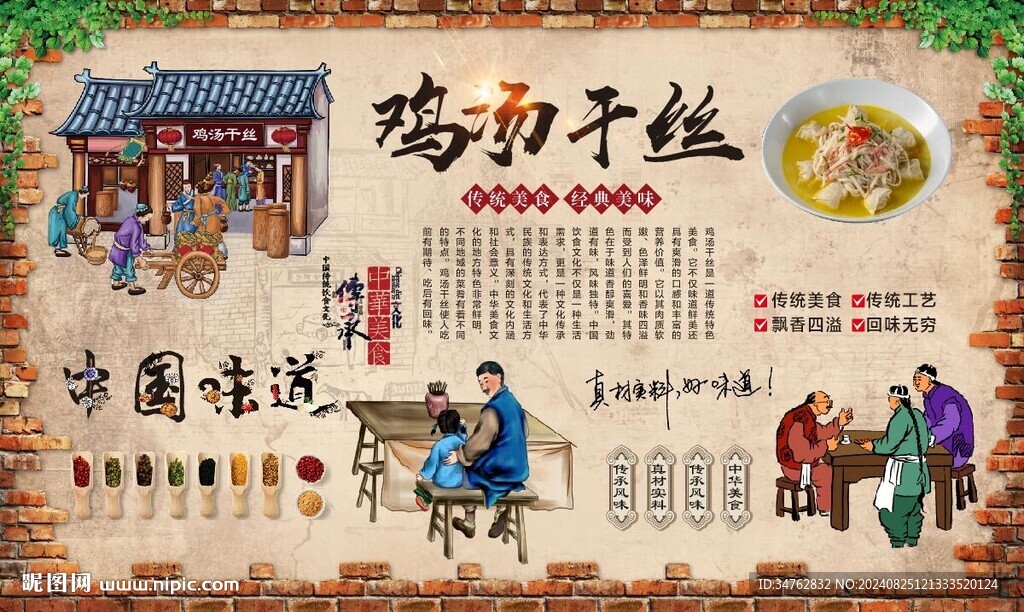 鸡汤干丝
鸡汤干丝
传统美食 经典美味
鸡汤干丝是一道传统特色
美食。它不仅味道鲜美还
具有爽滑的口感和丰富的
营养价值。它以其肉质软
嫩、色泽鲜明和香味四溢
而受到人们的喜爱。其特
色在于味道香醇爽滑，劲
道有味，风味独特。中国
饮食文化不仅是一种生活
需求，更是一种文化传承
和表达方式，代表了中华
民族的传统文化和生活方
式，具有深刻的文化内涵
和社会意义。中华美食文
化的地方特色非常鲜明，
不同地域的菜肴有着不同
的特点。鸡汤干丝使人吃
前有期待、吃后有回味。
传统美食 传统工艺
飘香四溢 回味无穷
中国传统饮食文化
传承
中華美食
文化
中国味道
真材实料,好味道!
传承风味
真材实料
传承风味
中华美食
昵图网 www.nipic.com
ID:34762832 NO:20240825121333520124